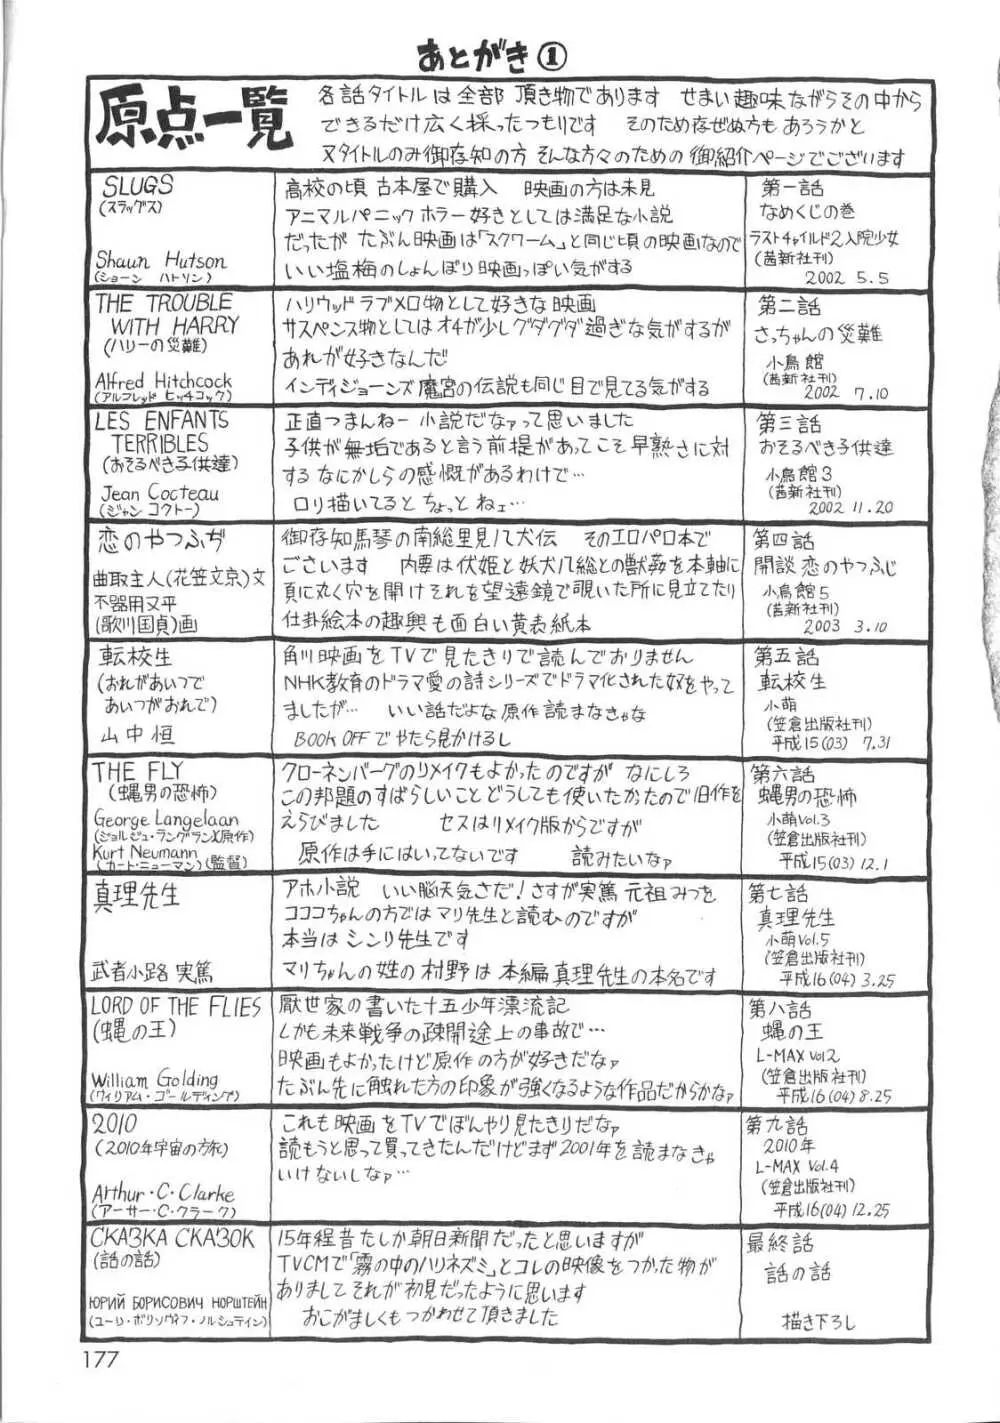 あとがき①
原点一覧
各話タイトルは全部 頂き物であります せまい趣味ながらその中から
できるだけ広く採ったつもりです そのため存ぜぬ方も あろうかと
又タイトルのみ御存知の方 そんな方々のための 御紹介ページでございます
SLUGS
(スラッグス)
Shaun Hutson
(ショーン ハトソン)
高校の頃 古本屋で購入 映画の方は未見
アニマルパニックホラー好きとしては満足な小説
だったが たぶん映画は「スクワーム」と同じ頃の映画なので
いい塩梅のしょんぼり映画っぽい気がする
第一話
なめくじの巻
ラストチャイルド2入院少女
(茜新社刊)
2002 5.5
THE TROUBLE
WITH HARRY
(ハリーの災難)
Alfred Hitchcock
(アルフレッド ヒッチコック)
ハリウッドラブメロ物として好きな映画
サスペンス物としてはオチが少しグダグダ過ぎな気がするが
あれが好きなんだ
インディジョーンズ魔宮の伝説も同じ目で見てる気がする
第二話
さっちゃんの災難
小鳥館
(茜新社刊)
2002 7.10
LES ENFANTS
TERRIBLES
(おそるべき子供達)
Jean Cocteau
(ジャン コクトー)
正直つまんねー小説だなァって思いました
子供が無垢であると言う前提があってこそ早熟さに対
するなにかしらの感慨があるわけで…
ロリ描いてると ちょっとねェ…
第三話
おそるべき子供達
小鳥館3
(茜新社刊)
2002 11.20
恋のやつふぢ
曲取主人(花笠文京)文
不器用又平
(歌川国貞)画
御存知馬琴の南総里見八犬伝 そのエロパロ本で
ございます 内要は伏姫と妖犬八総との獣姦を本軸に
頁に丸く穴を開けそれを望遠鏡で覗いた所に見立てたり
仕掛絵本の趣興も面白い黄表紙本
第四話
開談 恋のやつふじ
小鳥館5
(茜新社刊)
2003 3.10
転校生
(おれがあいつで
あいつがおれで)
山中恒
角川映画をTVで見たきりで読んでおりません
NHK教育のドラマ愛の詩シリーズでドラマ化された奴をやって
ましたが… いい話だよな原作読まなきゃな
BOOK OFFでやたら見かけるし
第五話
転校生
小萌
(笠倉出版社刊)
平成15(03) 7.31
THE FLY
(蝿男の恐怖)
George Langelaan
(ジョルジュ・ラングラン)(原作)
Kurt Neumann
(カート・ニューマン)(監督)
クローネンバーグのリメイクもよかったのですが なにしろ
この邦題のすばらしいことどうしても使いたかったので旧作を
えらびました セスはリメイク版からですが
原作は手にはいってないです 読みたいなァ
第六話
蝿男の恐怖
小萌Vol.3
(笠倉出版社刊)
平成15(03)12.1
真理先生
武者小路 実篤
アホ小説 いい脳天気さだ!さすが実篤 元祖みつを
コココちゃんの方ではマリ先生と読むのですが
本当はシンリ先生です
マリちゃんの姓の村野は本編真理先生の本名です
第七話
真理先生
小萌Vol.5
(笠倉出版社刊)
平成16(04)3.25
LORD OF THE FLIES
(蝿の王)
William Golding
(ウィリアム・ゴールディング)
厭世家の書いた十五少年漂流記
しかも未来戦争の疎開途上の事故で…
映画もよかったけど原作の方が好きだなァ
たぶん先に触れた方の印象が強くなるような作品だからかなァ
第八話
蝿の王
L-MAX Vol.2
(笠倉出版社刊)
平成16(04)8.25
2010
(2010年宇宙の旅)
Arthur・C・Clarke
(アーサー・C・クラーク)
これも映画をTVでぼんやり見たきりだなァ
読もうと思って買ってきたんだけどまず2001年を読まなきゃ
いけないしなァ…
第九話
2010年
L-MAX Vol.4
(笠倉出版社刊)
平成16(04)12.25
СКАЗКА СКАЗОК
(話の話)
ЮРИЙ БОРИСОВИЧ НОРШТЕЙН
(ユーリ・ボリソヴィフ・ノルシュテイン)
15年程昔たしか朝日新聞だったと思いますが
TVCMで「霧の中のハリネズミ」とコレの映像をつかった物が
ありましてそれが初見だったように思います
おこがましくもつかわせて頂きました
最終話
話の話
描き下ろし
177